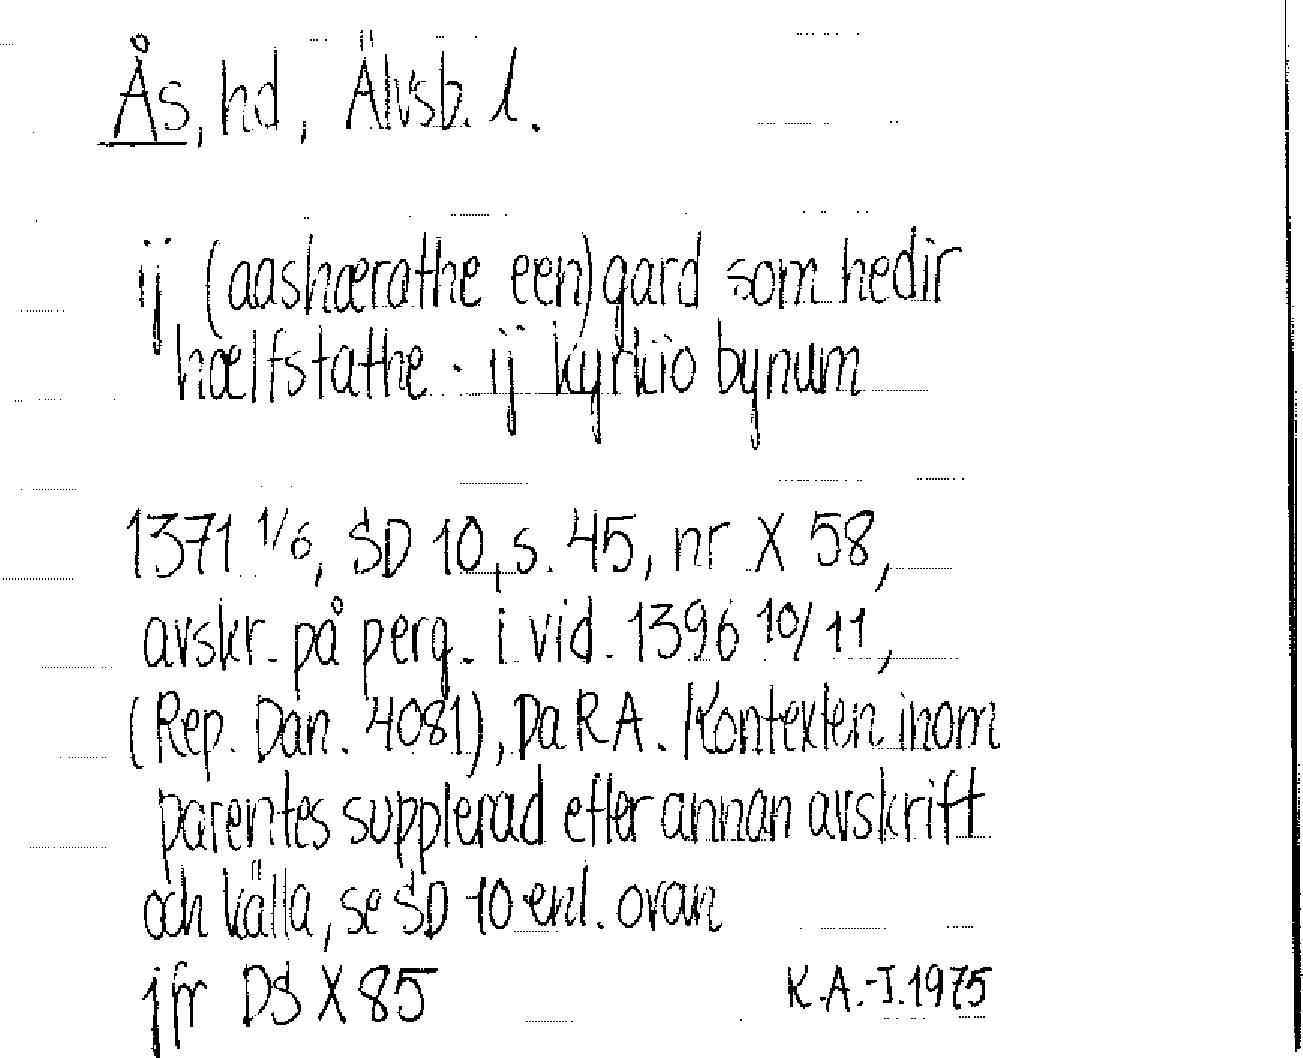 Ås, hd, Älvsb. l.
ij (aashærathe een) gard som hedir
hælfstathe · ij kyrkio bynum
1371 1/6, SD 10, s. 45, nr X 58,
avskr. på perg. i vid. 1396 10/11,
(Rep. Dan. 4081), DaRA. Kontexten inom
parentes supplerad efter annan avskrift
och källa, se SD 10 enl. ovan
jfr DS X 85
K.A.-I. 1975